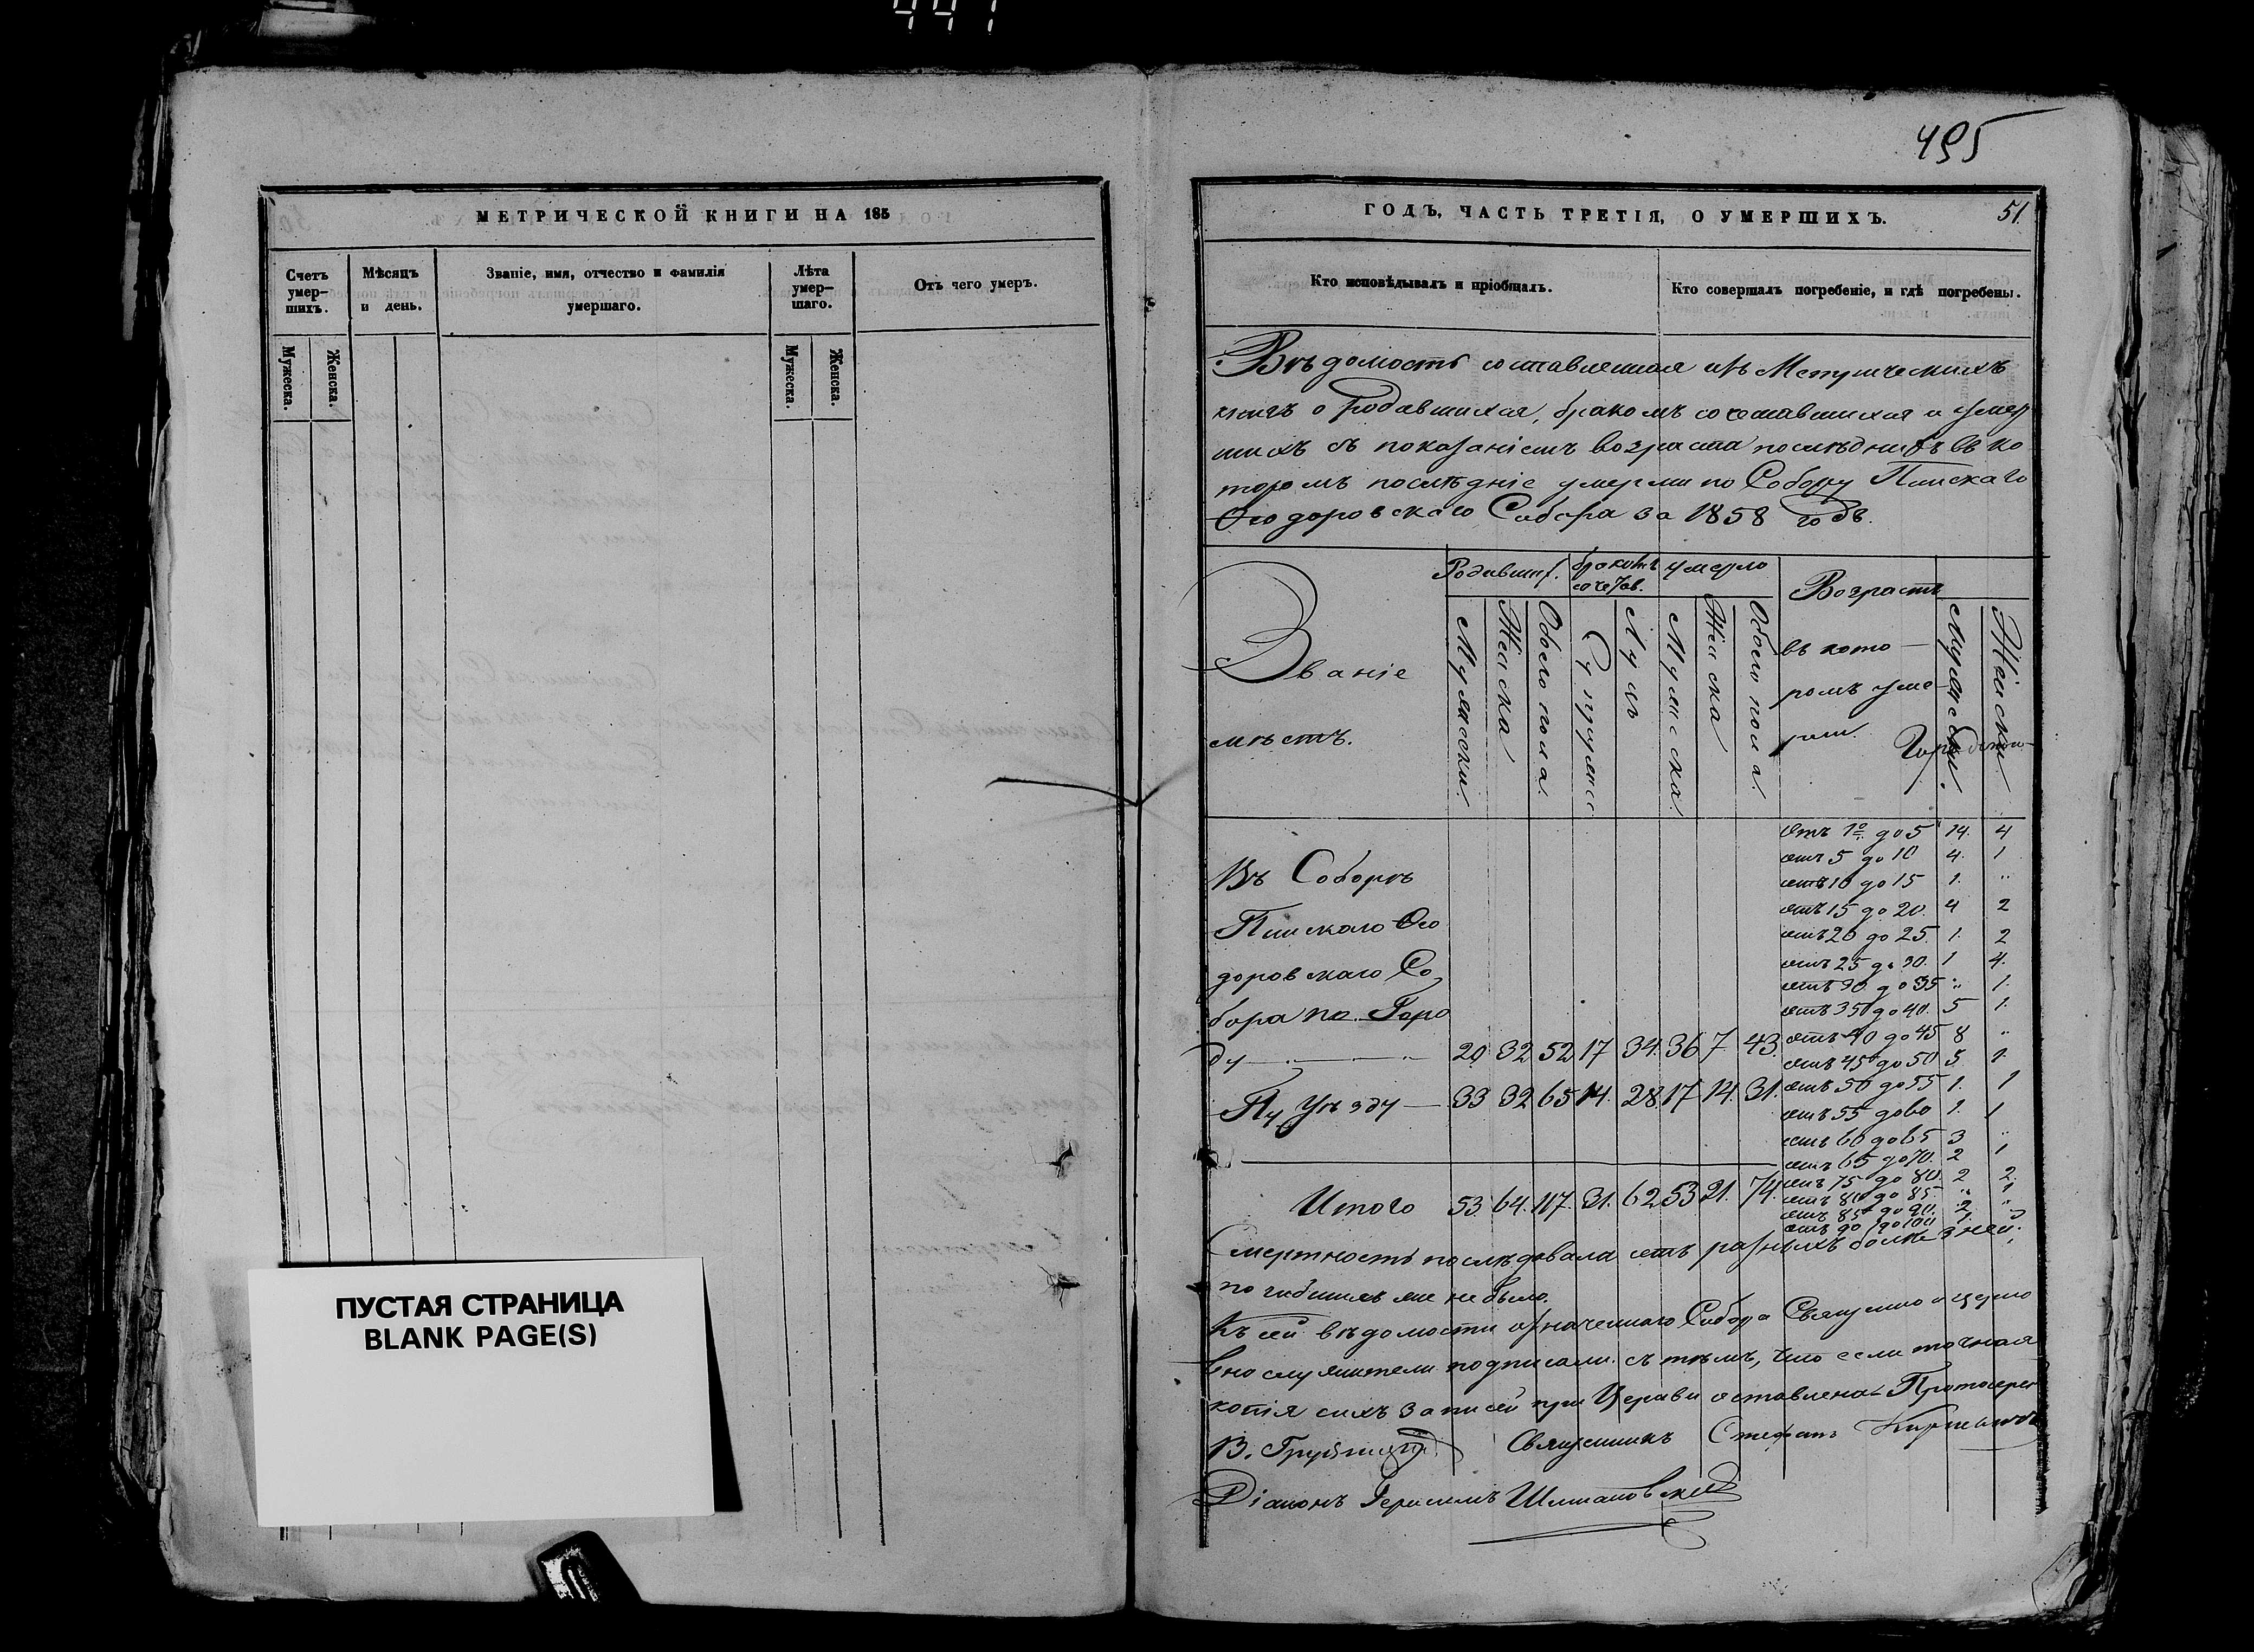 495
МЕТРИЧЕСКОЙ КНИГИ НА 185
Счетъ умер-шихъ.
Мѣсяцъ и день.
Званіе, имя, отчество и фамилія умершаго.
Лѣта умер-шаго.
Отъ чего умеръ.
Мужеска.
Женска.
Мужеска.
Женска.
ПУСТАЯ СТРАНИЦА
BLANK PAGE(S)
ГОДЪ, ЧАСТЬ ТРЕТІЯ, О УМЕРШИХЪ. 51.
Кто исповѣдывалъ и пріобщалъ.
Кто совершалъ погребеніе, и гдѣ погребены.
Вѣдомость составленная изъ Метрическихъ
книгъ о родавшихся, бракомъ сочетавшихся и умер
шихъ съ показаніемъ возраста послѣднихъ въ ко
торомъ послѣдніе умерли по Собору Пинскаго
Ѳеодоровскаго Собора за 1858 годъ.
Званіе
мѣстъ.
Родавших.
бракомъ сочетав.
умерло
Возрастъ
въ кото
ромъ уме
рли.
Мужески.
Женска
Обоего пола.
Супруже
Лицъ
Мужеска
Женска
Обоего пола.
Мужески.
Женски
Въ Соборѣ
Пинскаго Ѳео
доровскаго Со
бора по Горо
ду 20 32 52 17 34 36 7 43.
По Уѣзду 33 32 65 14. 28 17 14. 31.
Итого 53 64. 117. 31. 62 53 21. 74.
Отъ 1го до 5 14. 4
отъ 5 до 10 4. 1
отъ 10 до 15 1. "
отъ 15 до 20. 4 2
отъ 20 до 25. 1. 2
отъ 25 до 30. 1 4.
отъ 30 до 35 " 1.
отъ 35 до 40. 5 1.
отъ 40 до 45 8 "
отъ 45 до 50 5 1.
отъ 50 до 55 1. 1
отъ 55 до 60 1. 1
отъ 60 до 65 3 "
отъ 65 до 70. 2 1
отъ 75 до 80. 2 2.
отъ 80 до 85. " 1
отъ 85 до 90. 2 "
отъ 90 до 100 1.
Смертность послѣдовала отъ разныхъ болѣзней;
погибшихъ же не было.
Къ сей вѣдомости означеннаго Собора Священно и церко
внослужители подписали съ тѣмъ, что если точная
копія сихъ записей при Церкви оставлена. Протоіерей
В. Священникъ Стефанъ
Діаконъ Герасимъ